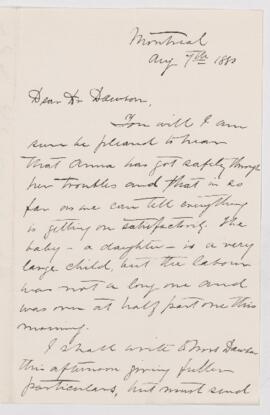 Montreal
Aug 7th 1880
Dear Dr Dawson,
You will I am
sure be pleased to hear
that Anna has got safely through
her troubles and that in so
far as we can tell everything
is getting on satisfactorily. The
baby - a daughter - is a very
large child, but the labour
was not a long one and
was over at half past one this
morning.
I shall write to Mrs Dawson
this afternoon giving fuller
particulars, but must send